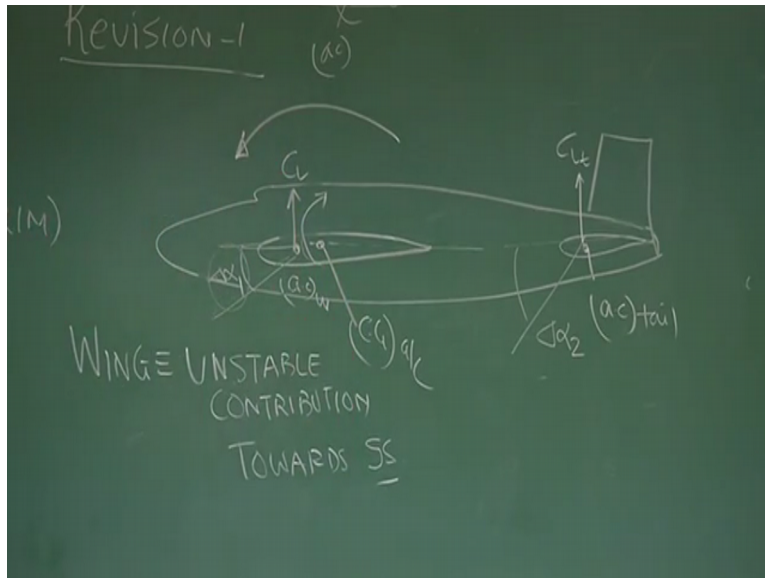 REVISION-1
(ac)
(1M)
CL
CLt
Δα1
(ac)w
(CG)a/c
Δα2
(ac)tail
WING ≡ UNSTABLE
CONTRIBUTION
TOWARDS SS